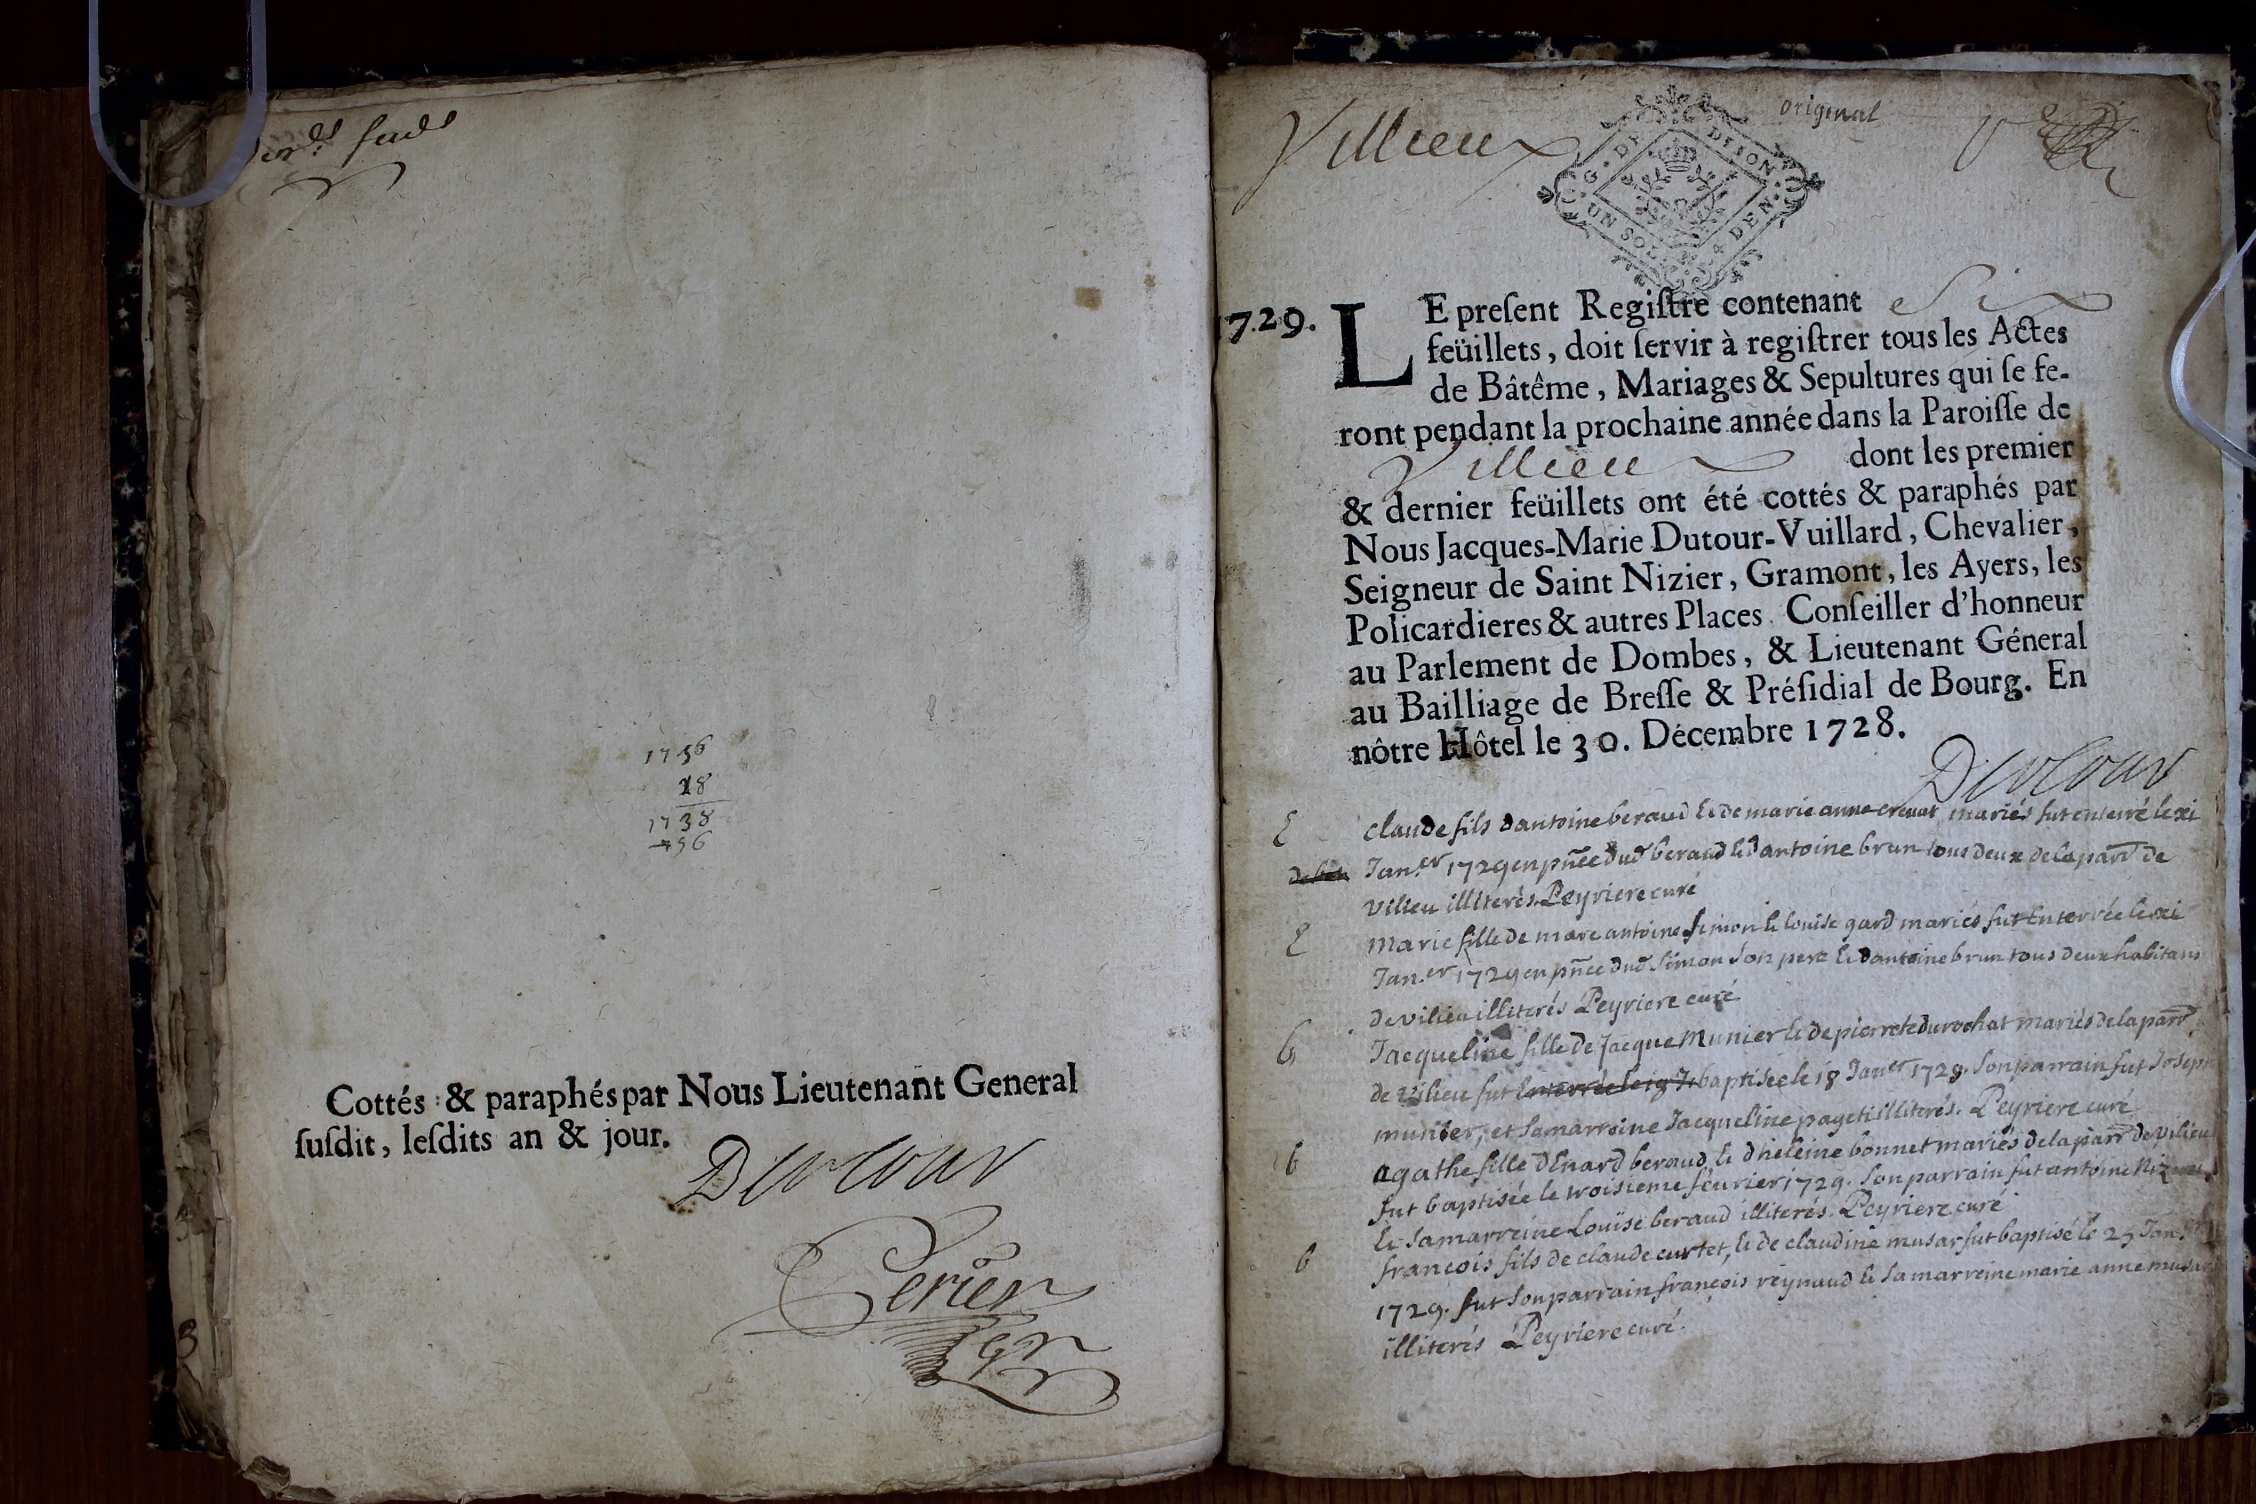 1756
18
1738
56
Cottés & paraphés par Nous Lieutenant General
ſuſdit, leſdits an & jour.
Dutour
Perier
Villieu
original
G. DE DIION
UN SOL 4 DEN.
1729.
LE preſent Regiſtre contenant Six
feüillets, doit ſervir à regiſtrer tous les Actes
de Bâtême, Mariages & Sepultures qui ſe fe-
ront pendant la prochaine année dans la Paroiſſe de
Villieu dont les premier
& dernier feüillets ont été cottés & paraphés par
Nous Jacques-Marie Dutour-Vuillard, Chevalier,
Seigneur de Saint Nizier, Gramont, les Ayers, les
Policardieres & autres Places. Conſeiller d'honneur
au Parlement de Dombes, & Lieutenant Géneral
au Bailliage de Breſſe & Préſidial de Bourg. En
nôtre Hôtel le 30. Décembre 1728.
Dutour
claude fils dantoine beraud & de marie anne crouat mariés fut enterré le xi
Jan.er 1729 en pñce dud beraud & dantoine brun tous deux de la parr de
vilieu illiterés Peyriere curé
marie fille de marc antoine simon & louise gard mariés fut Enterrée le xi
Jan.er 1729 en pñce dud Simon son pere & dantoine brun tous deux habitans
de vilieu illiterés Peyriere curé
b
Jacqueline fille de Jacque Munier & de pierrete durochat mariés de la parr
de vilieu fut Enterrée le 19 J baptisée le 18 Janer 1729. Son parrain fut Joseph
munier, et sa marraine Jacqueline paget illiterés. Peyriere curé
b
agathe fille dEnard beraud & dheleine bonnet mariés de la parr de vilieu
fut baptisée le troisieme fevrier 1729. Son parrain fut antoine
& sa marreine Louïse beraud illiterés. Peyriere curé
b
francois fils de claude curtet, & de claudine musar fut baptisé le 25 Jan.er
1729. fut son parrain françois reynaud & sa marreine marie anne musar
illiterés Peyriere curé.